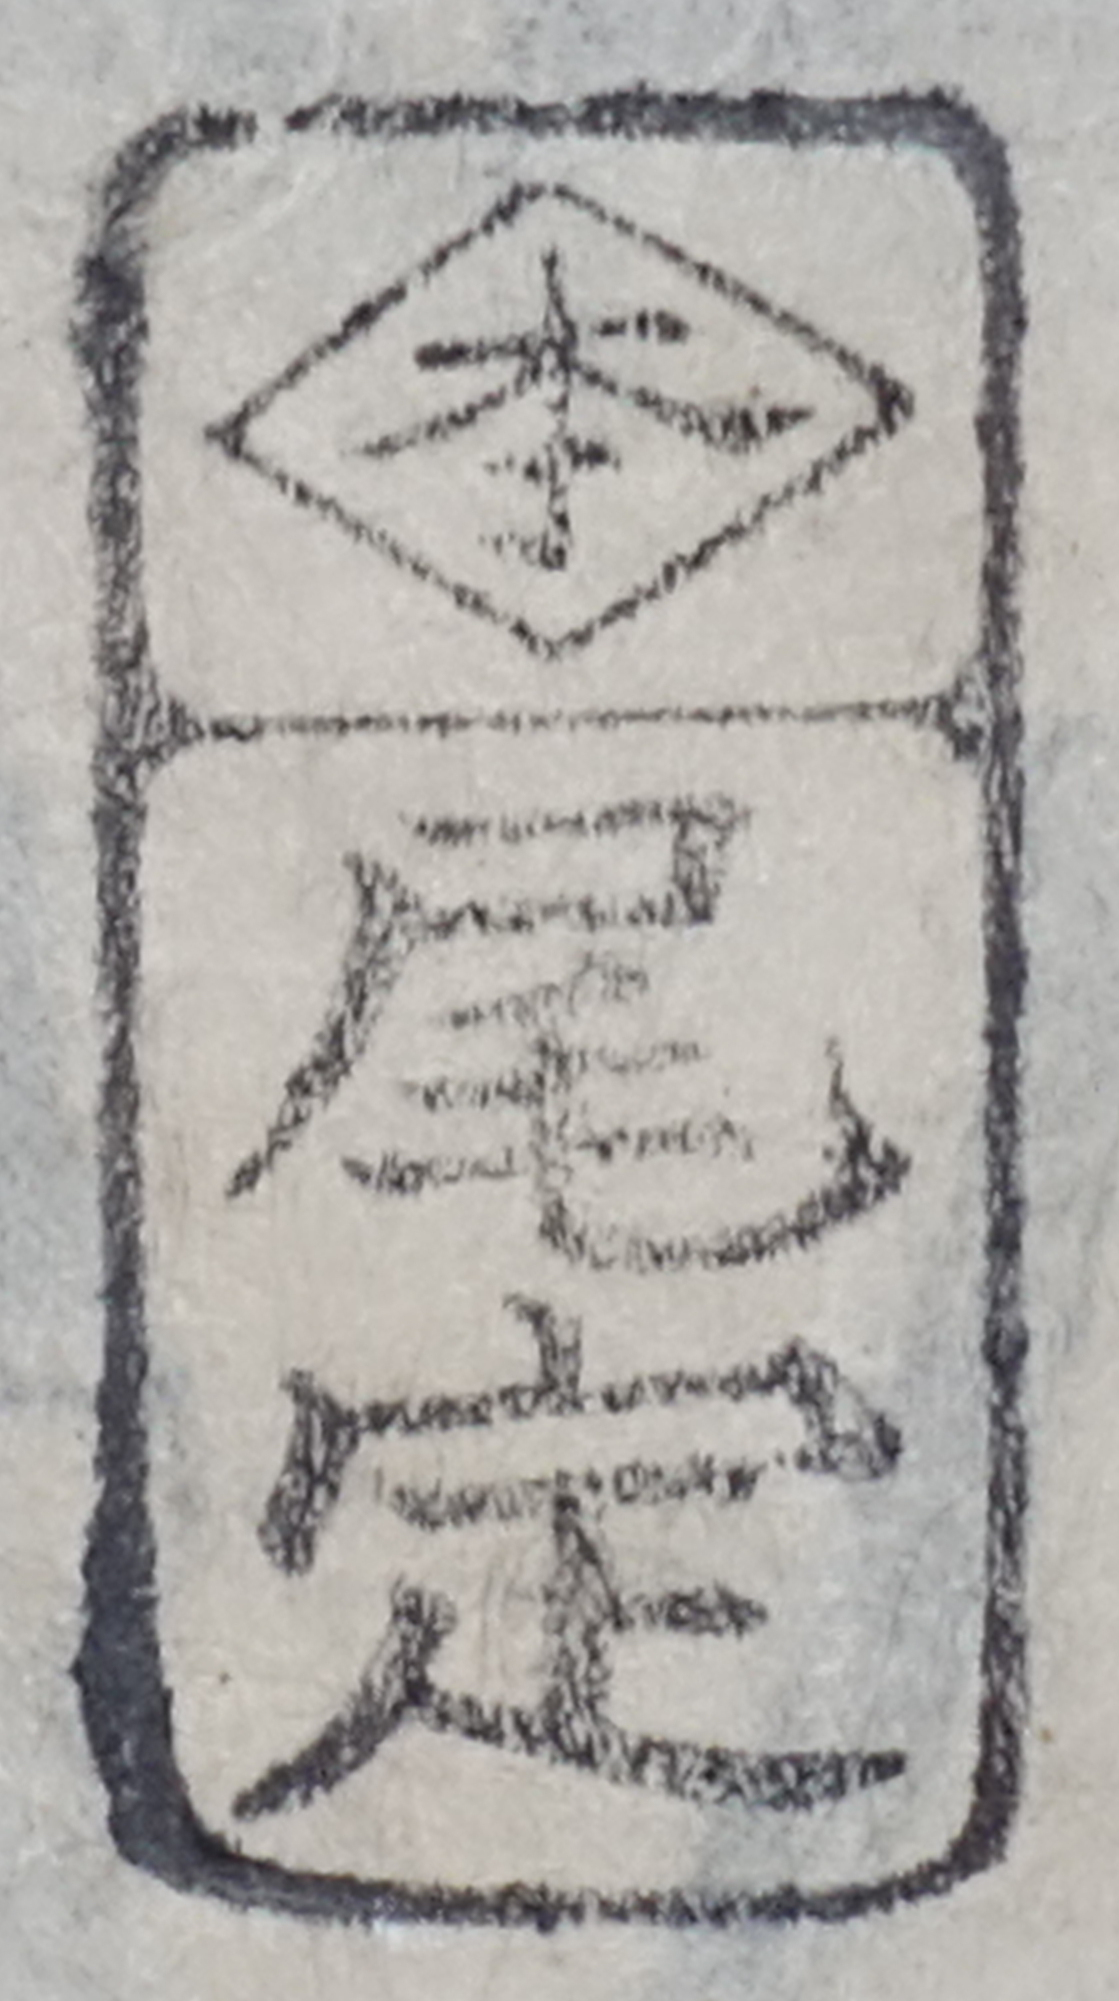 本
尾定